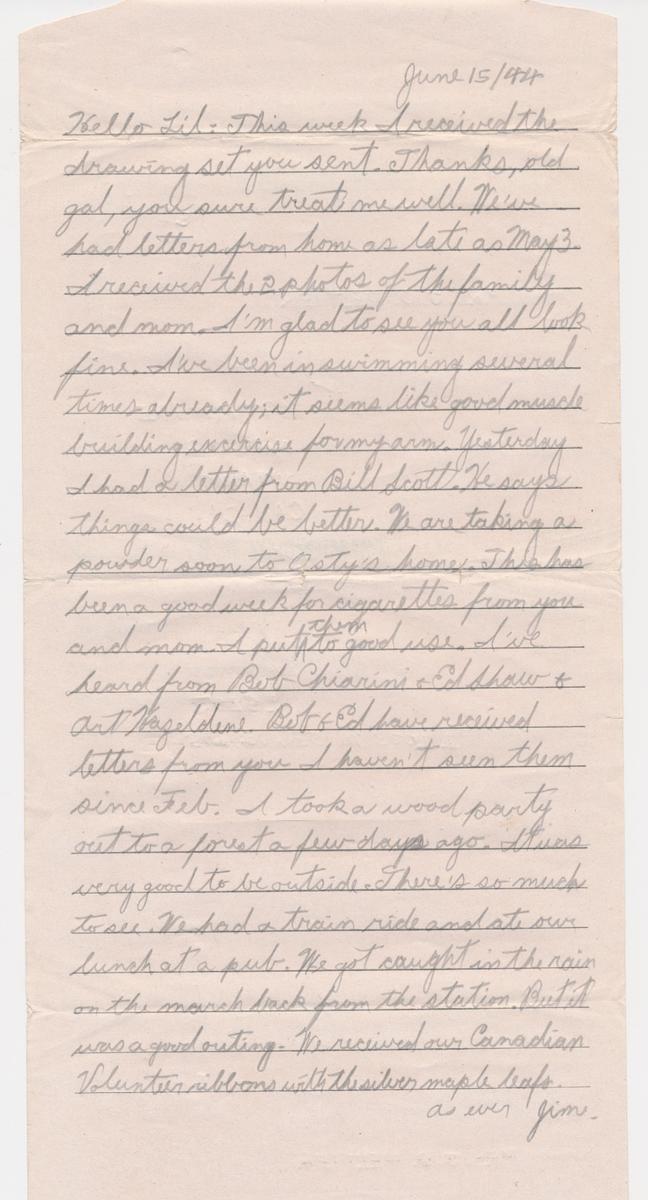 June 15/44
Hello Lil: This week I received the
drawing set you sent. Thanks, old
gal, you sure treat me well. We've
had letters from home as late as May 3.
I received the 2 photos of the family
and mom. I'm glad to see you all look
fine. I've been in swimming several
times already; it seems like good muscle
building excercise for my arm. Yesterday
I had a letter from Bill Scott. He says
things could be better. We are taking a
powder soon to Osty's home. This has
been a good week for cigarettes from you
and mom. I put them to good use. I've
heard from Bob Chiarini & Ed Shaw &
Art Hazeldene. Bob & Ed have received
letters from you. I haven't seen them
since Feb. I took a wood party
out to a forest a few days ago. It was
very good to be outside. There's so much
to see. We had a train ride and ate our
lunch at a pub. We got caught in the rain
on the march back from the station. But it
was a good outing. We received our Canadian
Volunteer ribbons with the silver maple leafs.
as ever Jim.